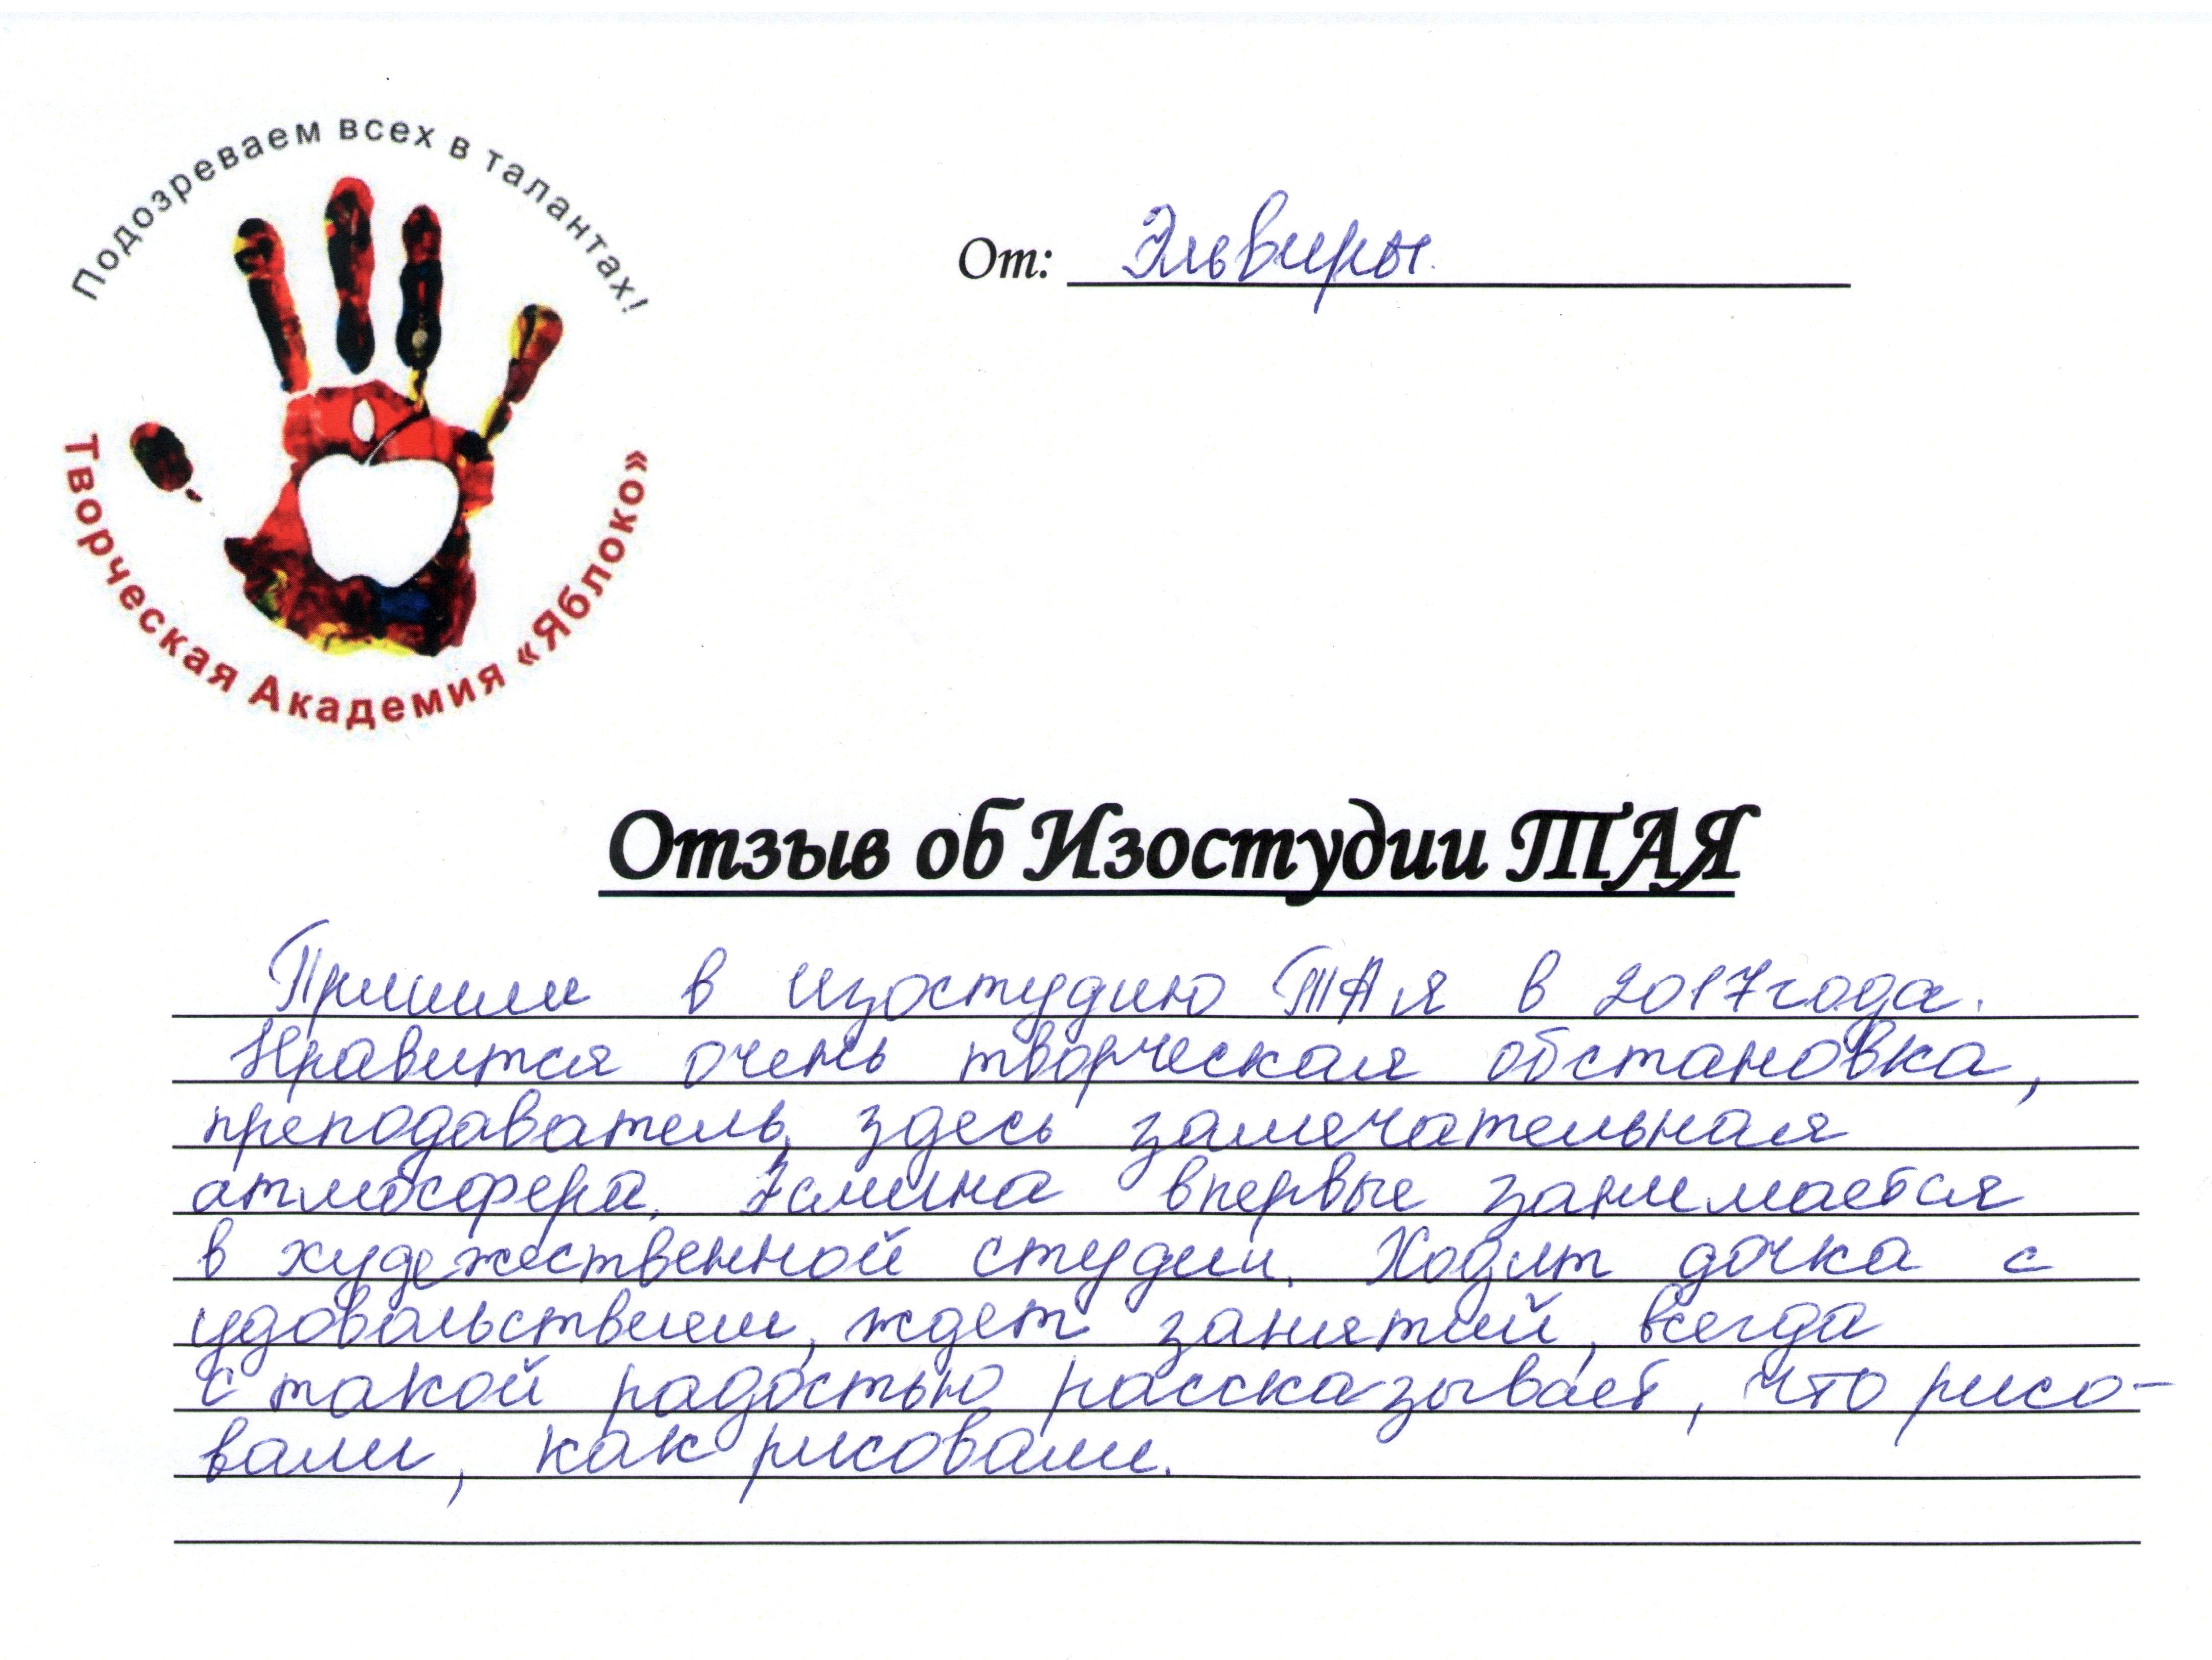 Подозреваем всех в талантах!
Творческая Академия «Яблоко»
От: Эльвиры.
Отзыв об Изостудии ТАЯ
Пришли в изостудию ТАЯ в 2017 года.
Нравится очень творческая обстановка,
преподаватель, здесь замечательная
атмосфера. впервые занимается
в художественной студии. Ходит дочка с
удовольствием, ждет занятий, всегда
с такой радостью рассказывает, что рисо-
вали, как рисовали.